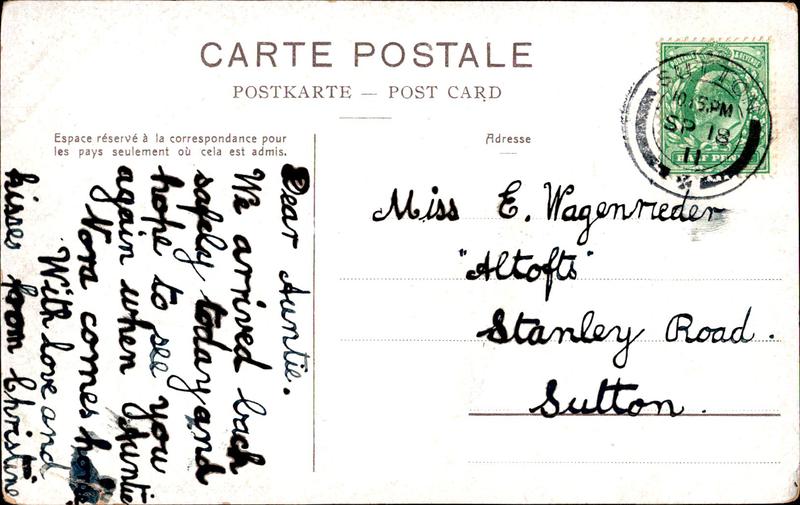 CARTE POSTALE
POSTKARTE — POST CARD
Espace réservé à la correspondance pour
les pays seulement où cela est admis.
Adresse
SUTTON
10.15.PM
SP 18
11
HALF PENNY
Miss E. Wagenrieder
"Altofts"
Stanley Road.
Sutton.
Dear Auntie.
We arrived back
safely today and
hope to see you
again when Auntie
Nora comes home
With love and
kisses from Christine